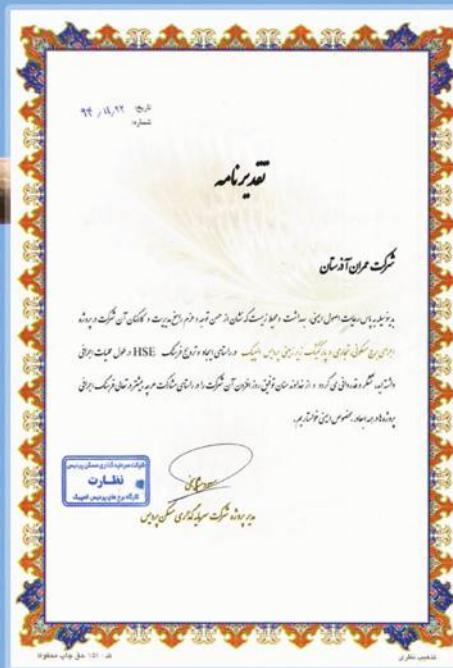 تاریخ: ۹۴٫۱۱٫۲۲
شماره:
تقدیرنامه
شرکت عمران آذرستان
بدینوسیله به پاس رعایت اصول ایمنی، بهداشت و محیط زیست که نشان از حسن توجه و عزم راسخ مدیریت و کارکنان آن شرکت در پروژه
اجرای برج مسکونی، تجاری و پارکینگ زیرزمینی پردیس المپیک در راستای ایجاد و ترویج فرهنگ HSE در طول عملیات اجرائی
داشته‌اید، تشکر و قدردانی می گردد و از خداوند منان توفیق روز افزون آن شرکت را در راستای مشارکت هر چه بیشتر و تعالی فرهنگ اجرائی
پروژه‌ها در همه ابعاد، بخصوص ایمنی خواستاریم.
شرکت سرمایه گذاری مسکن پردیس
نظارت
کارگاه برج های پردیس المپیک
مدیر پروژه شرکت سرمایه گذاری مسکن پردیس
کد: ۱۵۱ حق چاپ محفوظ
تذهیب نظری